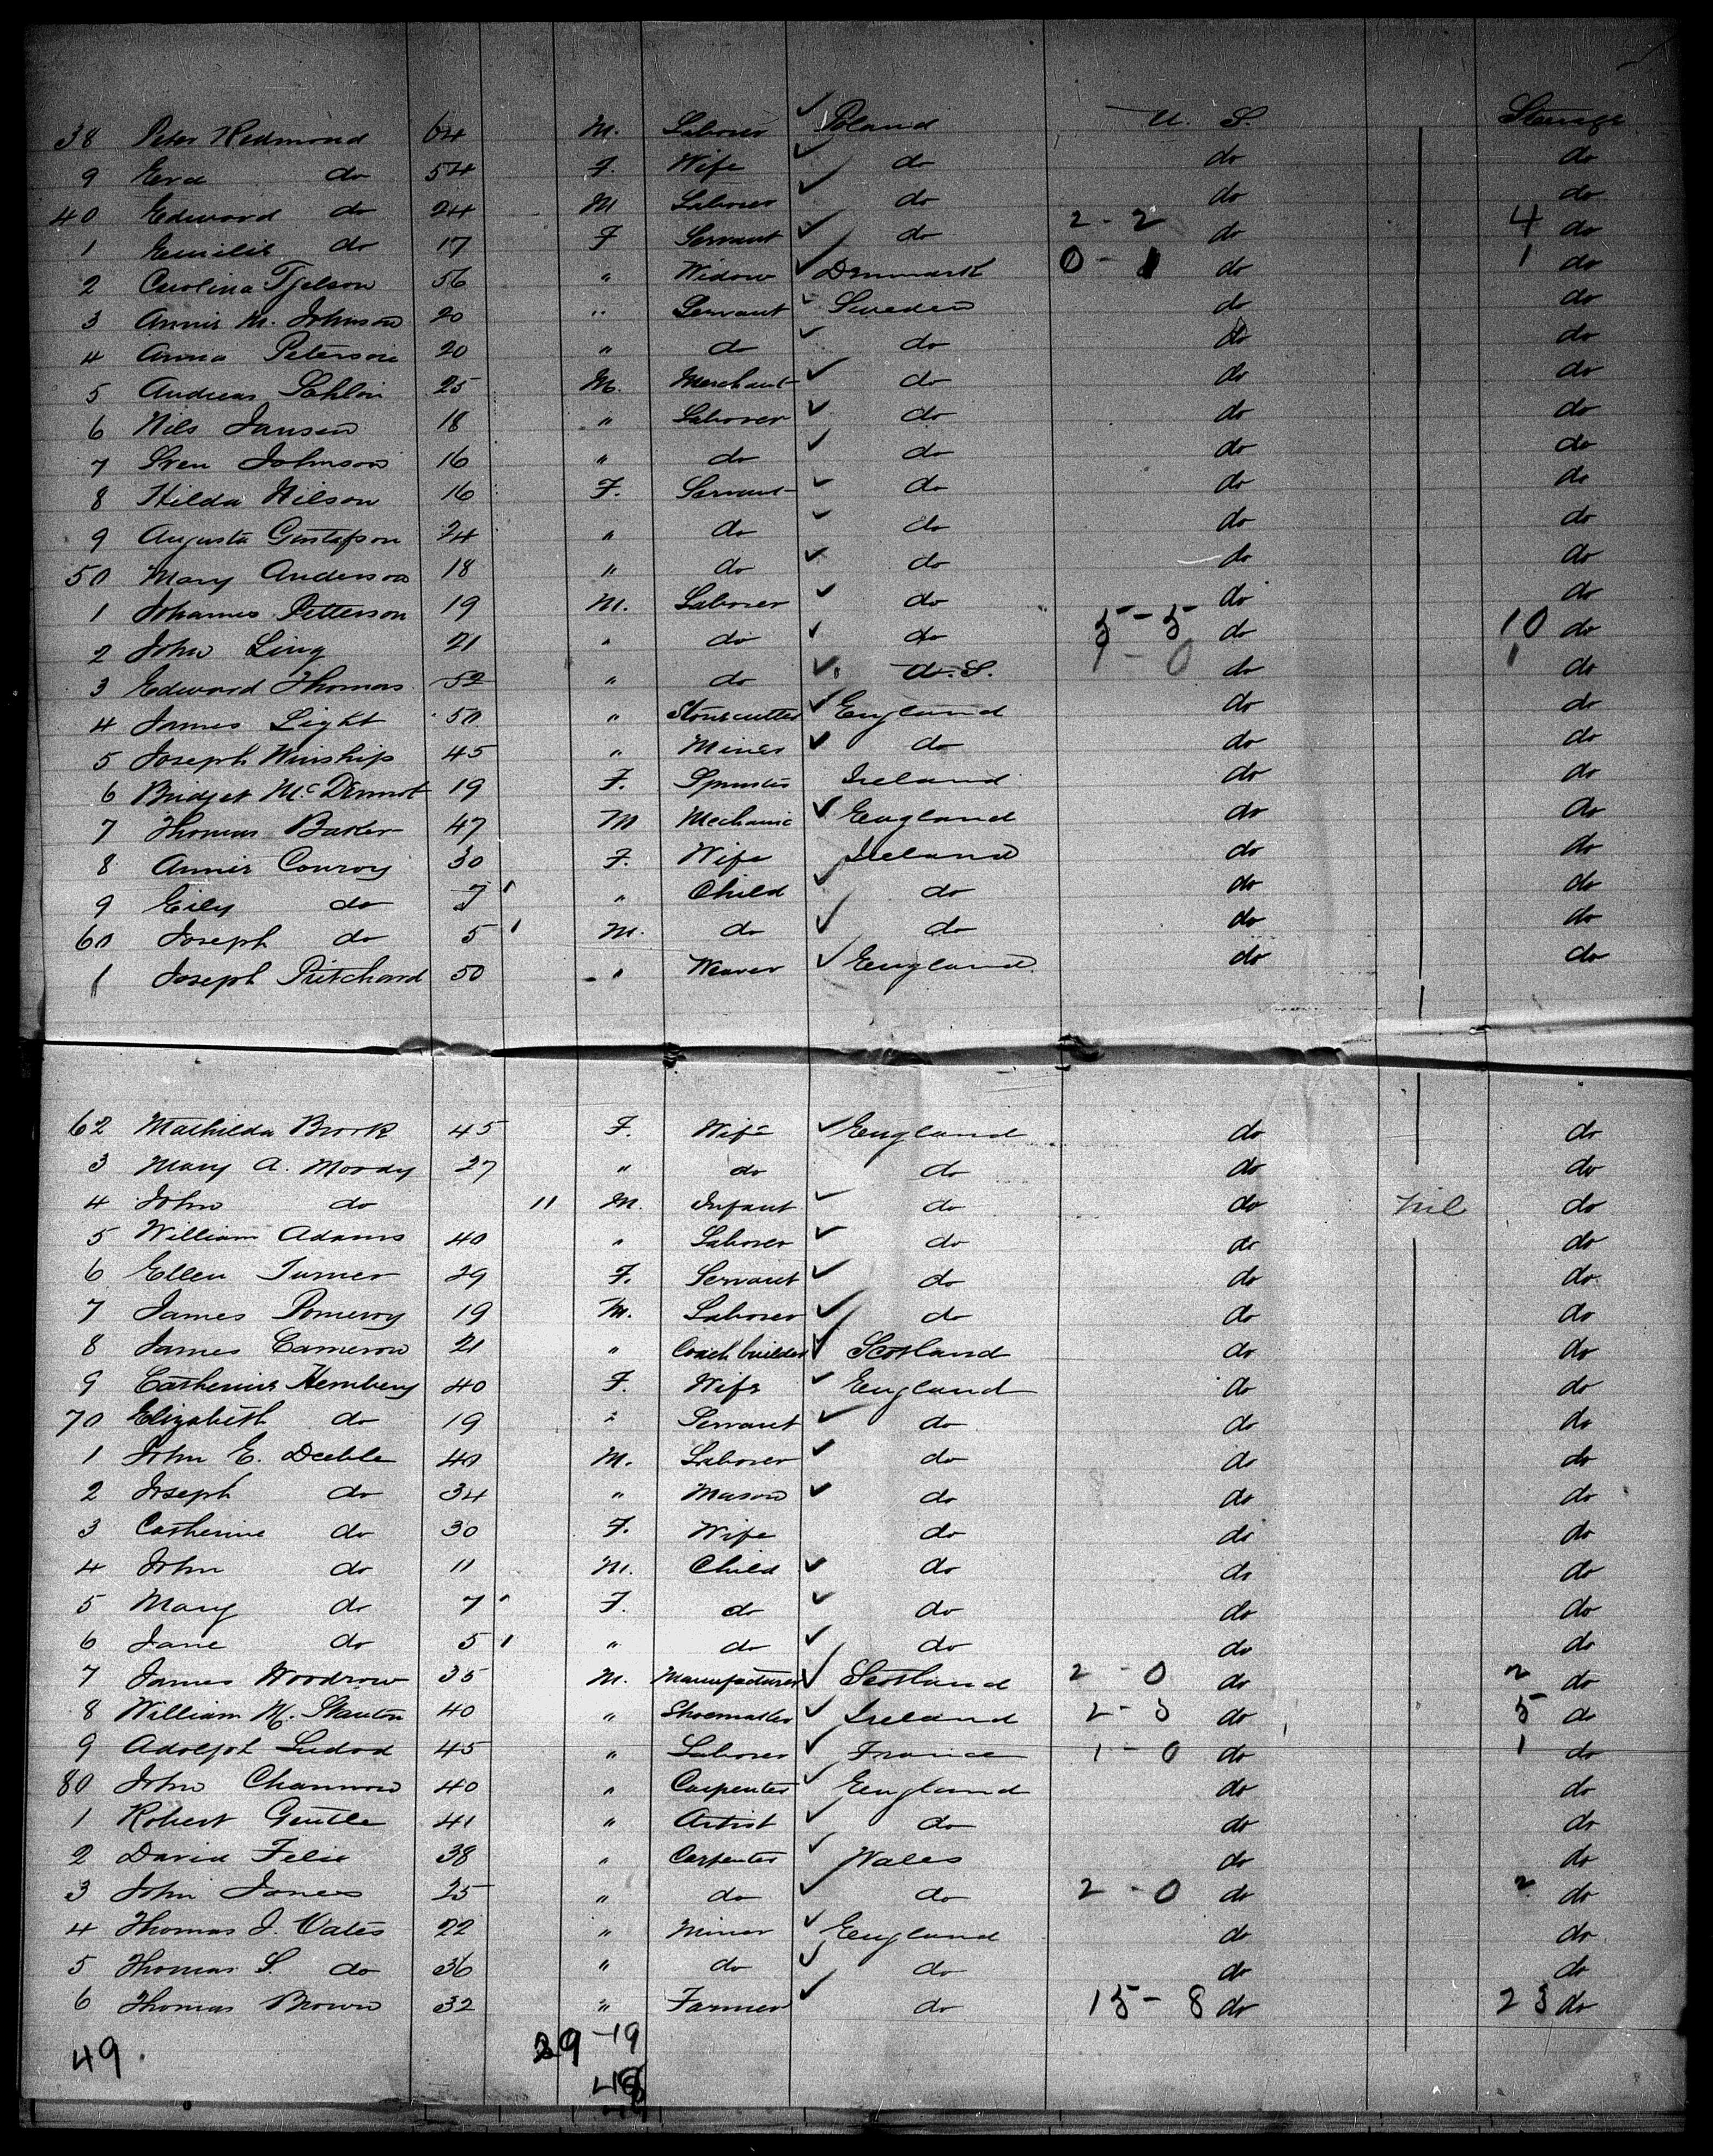 38 Peter Redmond 64 M. Laborer ✓ Poland U. S. Steerage
9 Eva do 54 F. Wife ✓ do do do
40 Edward do 24 M Laborer ✓ do do do
1 Emilie do 17 F Servant ✓ do 2-2 do 4 do
2 Carolina Tjelson 56 " Widow ✓ Denmark 0-1 do 1 do
3 Annie M. Johnson 20 " Servant Sweden do do
4 Anna Peterson 20 " do ✓ do do do
5 Andreas Sahlin 25 M. Merchant ✓ do do do
6 Nils Jansen 18 " Laborer ✓ do do do
7 Sven Johnson 16 " do ✓ do do do
8 Hilda Nilson 16 F. Servant ✓ do do do
9 Augusta Gustafson 24 " do ✓ do do do
50 Mary Anderson 18 " do ✓ do do do
1 Johannes Petterson 19 M. Laborer ✓ do do do
2 John Ling 21 " do ✓ do 5-5 do 10 do
3 Edward Thomas 52 " do ✓ U. S. 1-0 do 1 do
4 James Light 50 " Stonecutter ✓ England do do
5 Joseph Winship 45 " Miner ✓ do do do
6 Bridget McDermot 19 F. Spinster Ireland do do
7 Thomas Baker 47 M Mechanic ✓ England do do
8 Annie Conroy 30 F. Wife Ireland do do
9 Eily do 7 " Child ✓ do do do
60 Joseph do 5 M. do ✓ do do do
1 Joseph Pritchard 50 " Weaver ✓ England do do
62 Mathilda Brook 45 F. Wife ✓ England do do
3 Mary A. Moody 27 " do do do do
4 John do 11 M. Infant ✓ do do nil do
5 William Adams 40 " Laborer ✓ do do do
6 Ellen Turner 29 F. Servant ✓ do do do
7 James Pomeroy 19 M. Laborer ✓ do do do
8 James Cameron 21 " Coach builder ✓ Scotland do do
9 Catherine Hembery 40 F. Wife ✓ England do do
70 Elizabeth do 19 " Servant ✓ do do do
1 John E. Deeble 40 M. Laborer ✓ do do do
2 Joseph do 34 " Mason ✓ do do do
3 Catherine do 30 F. Wife do do do
4 John do 11 M. Child ✓ do do do
5 Mary do 7 F. do ✓ do do do
6 Jane do 5 " do ✓ do do do
7 James Woodrow 35 M. Manufacturer ✓ Scotland 2-0 do 2 do
8 William M. Stanton 40 " Shoemaker ✓ Ireland 2-3 do 5 do
9 Adolph 45 " Laborer ✓ France 1-0 do 1 do
80 John Channon 40 " Carpenter ✓ England do do
1 Robert Gentle 41 " Artist ✓ do do do
2 David Felix 38 " Carpenter ✓ Wales do do
3 John Jones 25 " do ✓ do 2-0 do 2 do
4 Thomas J. Vates 22 " Miner ✓ England do do
5 Thomas S. do 36 " do ✓ do do do
6 Thomas Brown 32 " Farmer ✓ do 15-8 do 23 do
49 29-19
48